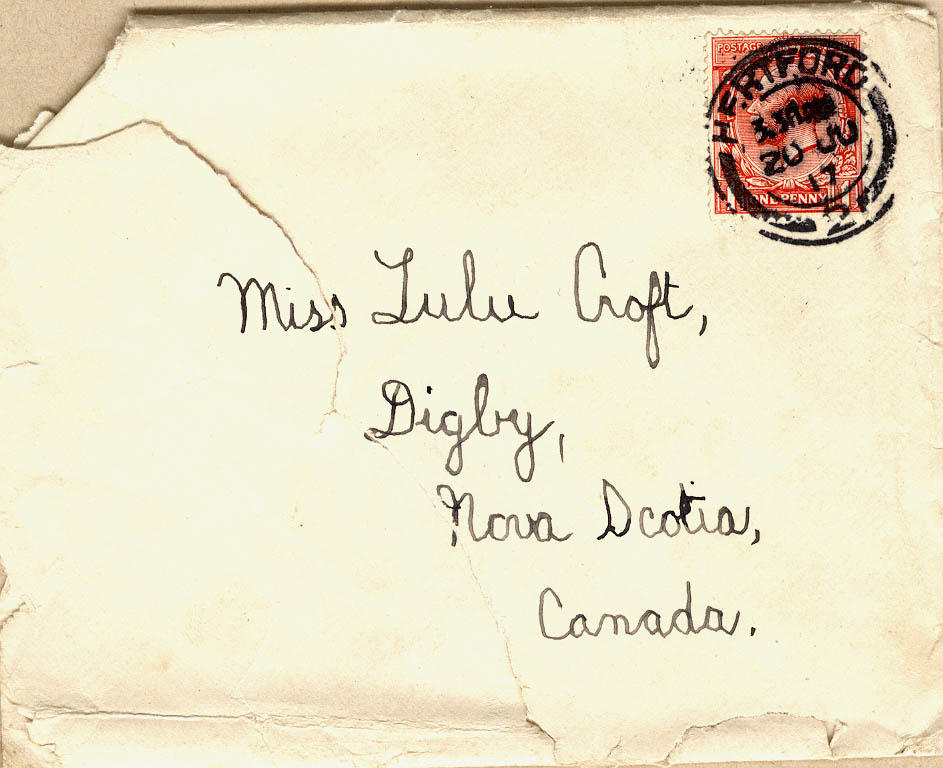 POSTAGE
HERTFORD
20 JU
17
2
ONE PENNY
Miss Lulu Croft,
Digby,
Nova Scotia,
Canada.